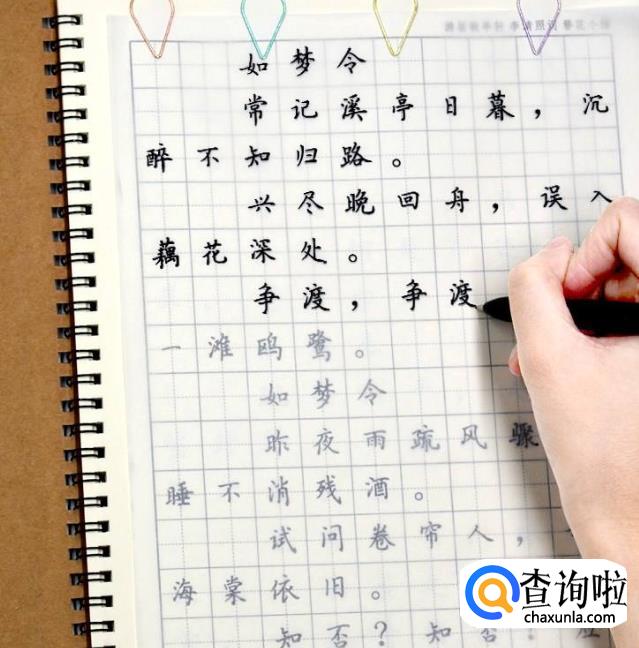 李清照词
如梦令
常记溪亭日暮，沉
醉不知归路。
兴尽晚回舟，误入
藕花深处。
争渡，争渡
一滩鸥鹭。
如梦令
昨夜雨疏风骤
睡不消残酒。
试问卷帘人，
海棠依旧。
知否？知否？应
查询啦
chaxunla.com